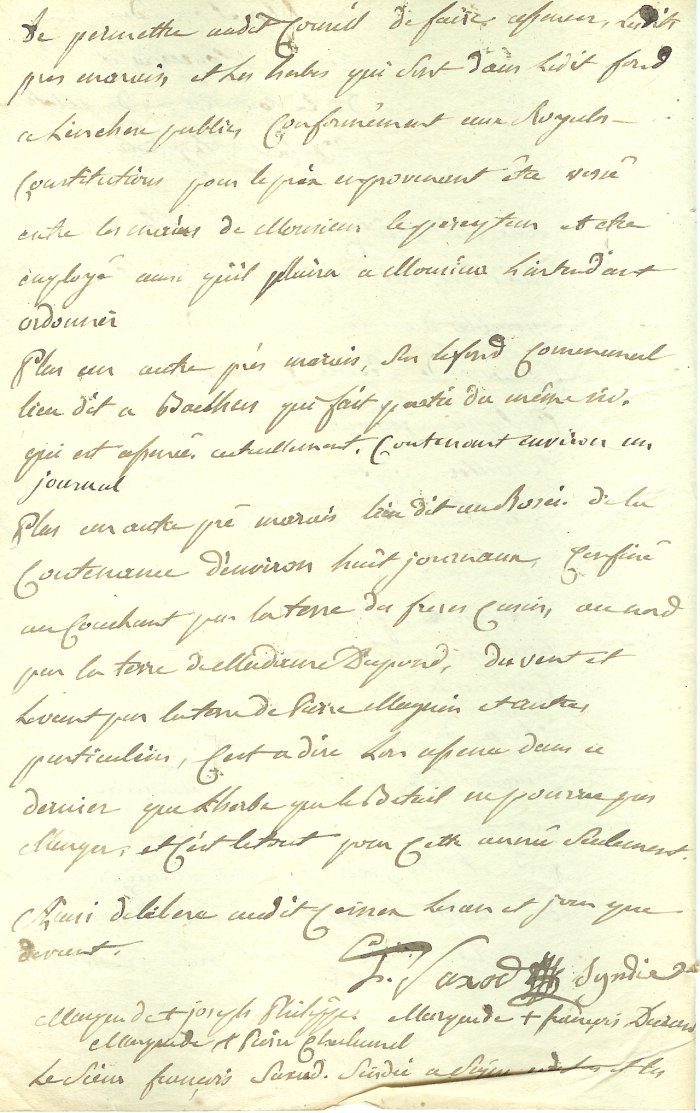 De permettre audit Conseil de faire affermer, Lesdits
prés marais, et Les herbes qui sont dans Ledit fond
a Lenchere publics Conformément aux Royales
Constitutions pour le prix en provenant être versé
entre les mains de Monsieur le percepteur et etre
employé aux qu'il plaira a Monsieur L'intendant
ordonner
Plus un autre prés marais, sur le fond Communal
lieu dit a qui fait partie du même
qui est affermé actuellement, Contenant environ un
journal
Plus un autre pré marais lieu dit au de la
Contenance d'environ huit journaux, Confiné
au Couchant par la terre des freres au nord
par la terre de Madame Dupond, du vent et
Levant par la terre de Pierre Magnin et autres
particuliers, C'est a dire Lon afferme dans ce
dernier que Lherbe que le Betail ne pourra pas
Manger, et C'est le tout pour Cette année Seulement.
Ainsi délibéré audit Lesan et jour que
devant.
Saxod Syndic
Marque de + joseph Philippe Marque de + françois
Marque de + Pierre Chalamel
Le Sieur françois Saxod. Sindic a Signé et les